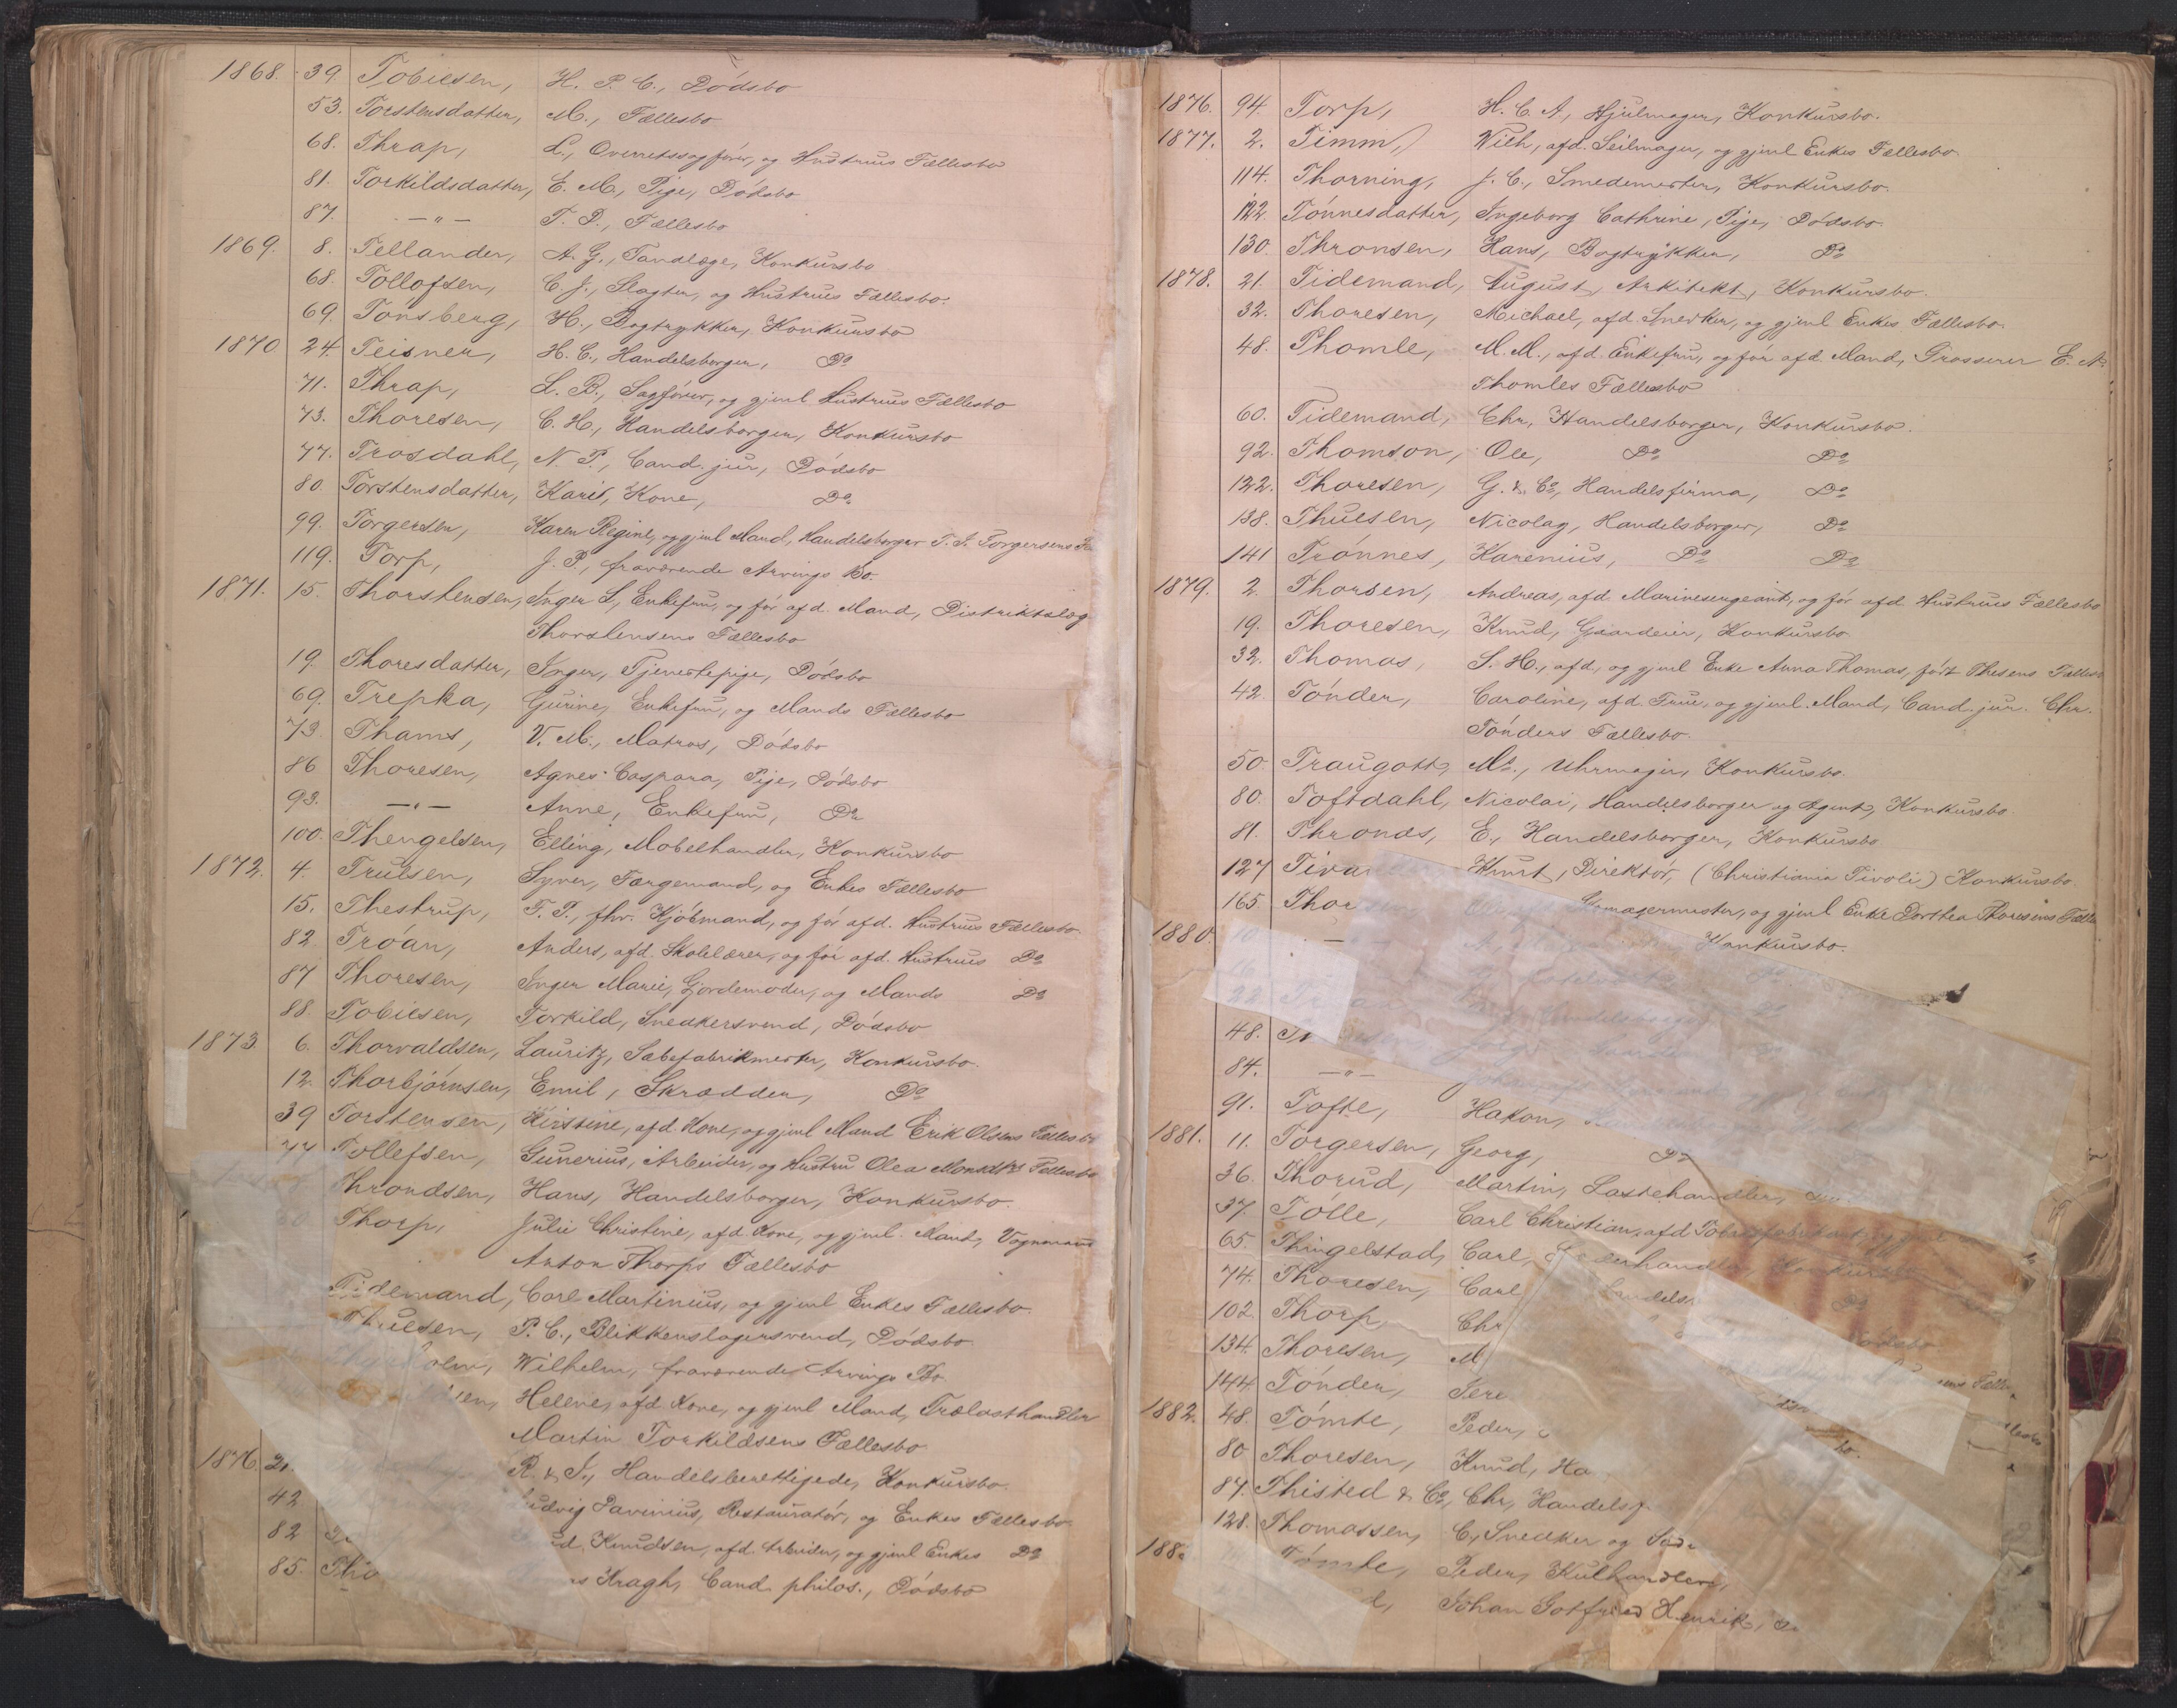 1868. 39. Tobiesen, H. P. C., Dödsbo
53. Torstensdatter, M., Fællesbo
68. Thrap, L., Overretssagförer, og Hustrues Fællesbo
81. Torkildsdatter, E. M., Pige, Dödsbo
87. —"— T. D., Fællesbo
1869. 8. Tellander, A. G., Tandlæge, Konkursbo
68. Tollofsen, C. J., Slagter, og Hustrues Fællesbo.
69. Tonsberg, H., Bogtrykker, Konkursbo
1870 24. Teisner, H. C., Handelsborger, Do
71. Thrap, L. B., Sagförer, og gjenl Hustrues Fællesbo
73. Thoresen, C. H., Handelsborger, Konkursbo
77. Trosdahl, N. P., Cand. jur, Dödsbo
80. Torstensdatter, Kari, Kone, Do
99. Torgersen, Karen Regine, og gjenl Mand, Handelsborger T. J. Torgersens
119. Torp, J. P., fraværende Arvings Bo.
1871. 15. Thorstensen, Inger L, Enkefru, og för afd. Mand, Distriktslæg
Thorstensens Fællesbo
19. Thoresdatter, Inger, Tjenestepige, Dödsbo
69. Trepka, Gurine, Enkefru, og Mands Fællesbo
73. Thams, V. M., Matros, Dödsbo
86 Thoresen, Agnes Caspara, Pige, Dödsbo
93. —"— Anne, Enkefru, Do
100. Thengelsen, Elling, Mobelhandler, Konkursbo
1872. 4. Trulsen, Syver, Færgemand, og Enkes Fællesbo
15. Thestrup, F. P., fhv. Kjöbmand, og för afd. Hustrues Fællesbo.
82 Tröan, Anders, afd. Skolelærer, og för afd. Hustrues Do
87 Thoresen, Inger Marie, Gjordemoder, og Mands Do
88. Tobiesen, Torkild, Snedkersvend, Dödsbo
1873. 6. Thorvaldsen, Lauritz, Sæbefabrikmester, Konkursbo.
12. Thorbjörnsen, Emil, Skrædder, Do
39 Torstensen, Kirstine, afd. Kone, og gjenl Mand Erik Olsens Fællesbo
77 Tollefsen, Gunerius, Arbeider, og Hustru Olea Monsdtrs Fællesbo
Throndsen, Hans, Handelsborger, Konkursbo.
Thorp, Julie Christine, afd. Kone, og gjenl. Mand, Vognmand
Anton Thorps Fællesbo
Tidemand, Carl Martinius, og gjenl Enkes Fællesbo.
Thuesen, P. C., Blikkenslagersvend, Dödsbo.
Wilhelm, fraværende Arvings Bo.
Helene, afd Kone, og gjenl Mand, Trælasthandler
Martin Torkildsens Fællesbo
1876. R. & J., Handelsberettigede, Konkursbo.
42 Ludvig Severinius, Restauratör, og Enkes Fællesbo
82 Knudsen, afd. Arbeider, og gjenl Enkes Do
85. Tho Kragh, Cand. philos., Dödsbo
1876. 94. Torp, H. C. A., Hjulmager, Konkursbo.
1877. 2. Timm, Wilh, afd. Seilmager, og gjenl Enkes Fællesbo
114. Thorning, J. C., Smedemester, Konkursbo.
122. Tönnesdatter, Ingeborg Cathrine, Pige, Dödsbo.
130. Thronsen, Hans, Bogtrykker, Do
1878. 21. Tidemand, August, Arkitekt, Konkursbo.
32. Thoresen, Michael, afd. Snedker, og gjenl Enkes Fællesbo.
48. Thomle, M. M., afd. Enkefru, og för afd. Mand, Grosserer E. A.
Thomles Fællesbo
60. Tidemand, Chr, Handelsborger, Konkursbo.
92. Thomson, Ole, Do Do
122. Thoresen, G. & Co, Handelsfirma, Do
138. Thuesen, Nicolay, Handelsborger, Do
141 Trönnes, Karenius, Do Do
1879. 2. Thorsen, Andreas, afd. Marinesergeant, og för afd. Hustrues Fællesbo
19. Thoresen, Knud, Gaardeier, Konkursbo
32. Thomas, S. H., afd., og gjenl Enke Anna Thomas, född Thesens Fælles
42. Tönder, Caroline, afd. Frue, og gjenl. Mand, Cand. jur. Chr.
Tönders Fællesbo.
50. Traugott, M., Uhrmager, Konkursbo.
80. Toftdahl, Nicolai, Handelsborger og Agent, Konkursbo
81. Thronds, E., Handelsborger, Konkursbo
127 Tiva Knut, Direktör, (Christiania Tivoli) Konkursbo.
165. Thor Skomagermester, og gjenl Enke Dorthea Thoresens Fælle
1880. Konkursbo.
22.
48.
84. —"—
91. Tofte, Hakon,
1881. 11. Torgersen, Georg, Do
36. Thorud, Martin, Lastehandler,
37. Tölle, Carl Christian, afd Tobaksfabrikant, og gjenl
65. Thingelstad, Carl, Læderhandler, Konkursbo
74. Thoresen, Carl Handels
102. Thorp, Chr
134. Thoresen, M
144. Tönder,
1882. 48. Tömte, Peder,
80 Thoresen, Knud, Ha
87. Thisted & Co, Chr, Handelsf
128. Thomassen, C., Snedker og
188 Tömte, Peder, Kulhandler,
Johan Gotfried Henrik,